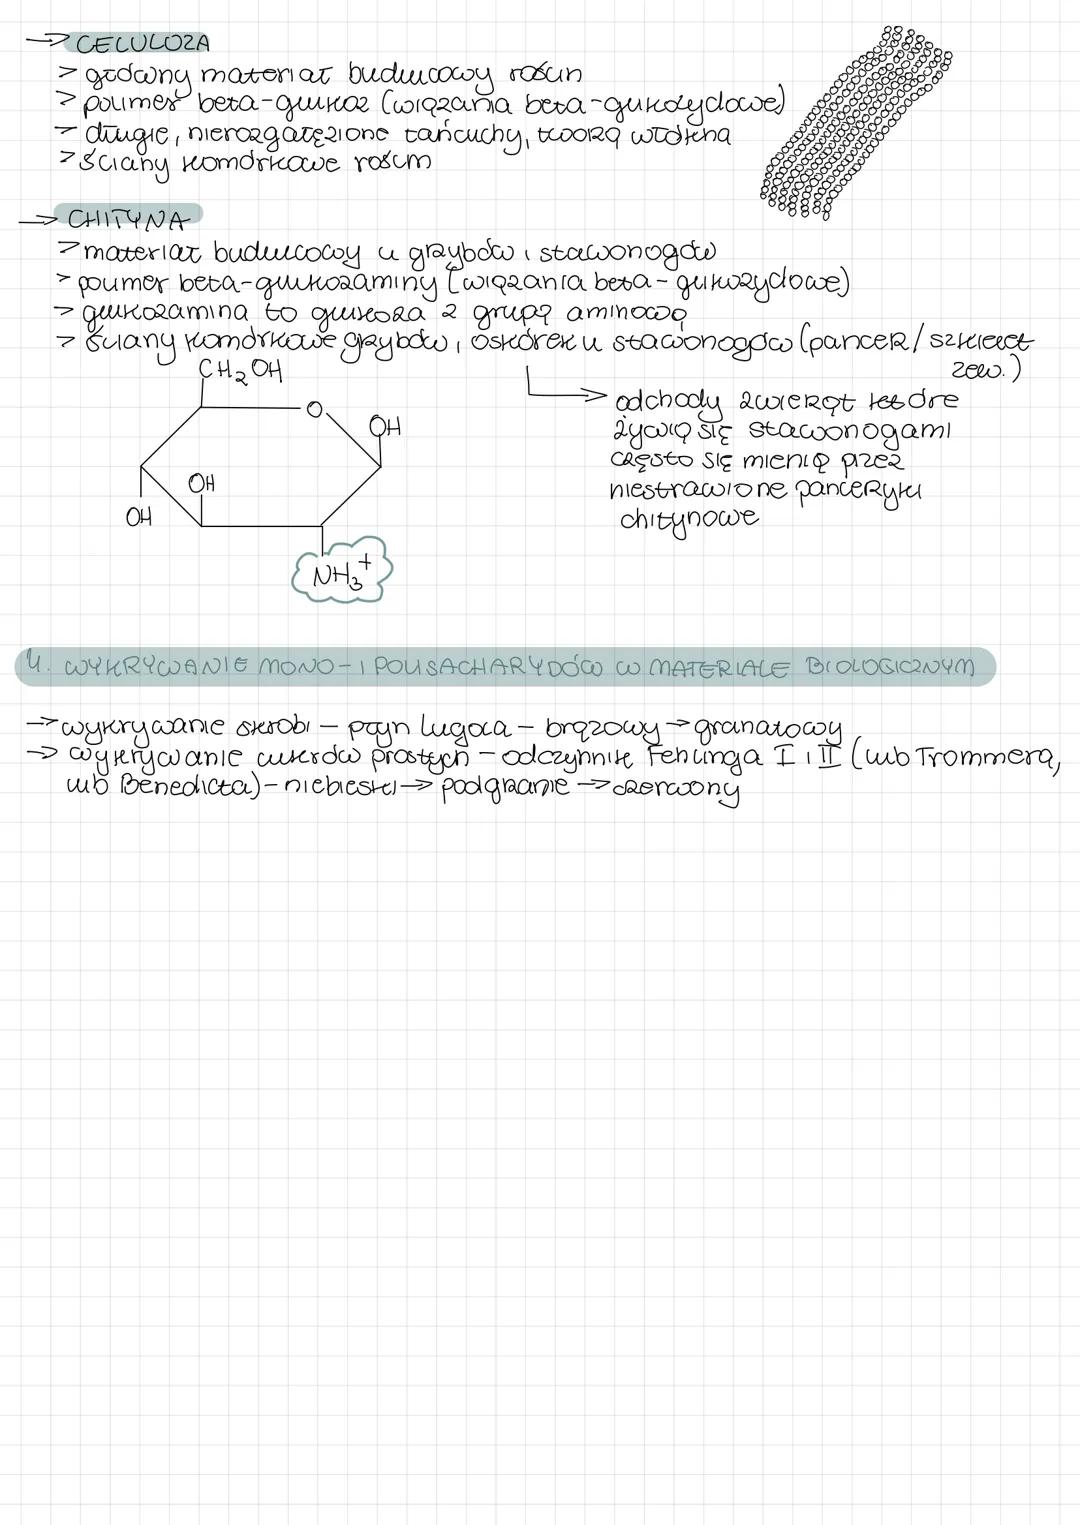 → CELULOZA
> główny materiał budulcowy roślin
> polimer beta-glukoz (wiązania beta-glikozydowe)
> długie, nierozgałęzione łańcuchy, tworzą włókna
> ściany komórkowe roślin
→ CHITYNA
> materiał budulcowy u grzybów i stawonogów
> polimer beta-glukozaminy (wiązania beta-glikozydowe)
> glukozamina to glukoza z grupą aminową
> ściany komórkowe grzybów, oskórek u stawonogów (pancerz/szkielet
zew.)
→ odchody zwierząt które
żywią się stawonogami
często się mienią przez
niestrawione pancerzyki
chitynowe
CH2OH
O
OH
OH
OH
NH3+
4. WYKRYWANIE MONO- I POLISACHARYDÓW W MATERIALE BIOLOGICZNYM
→ wykrywanie skrobi – płyn lugola – brązowy → granatowy
→ wykrywanie cukrów prostych – odczynnik Fehlinga I i II (lub Trommera,
lub Benedicta) – niebieski → podgrzanie → czerwony